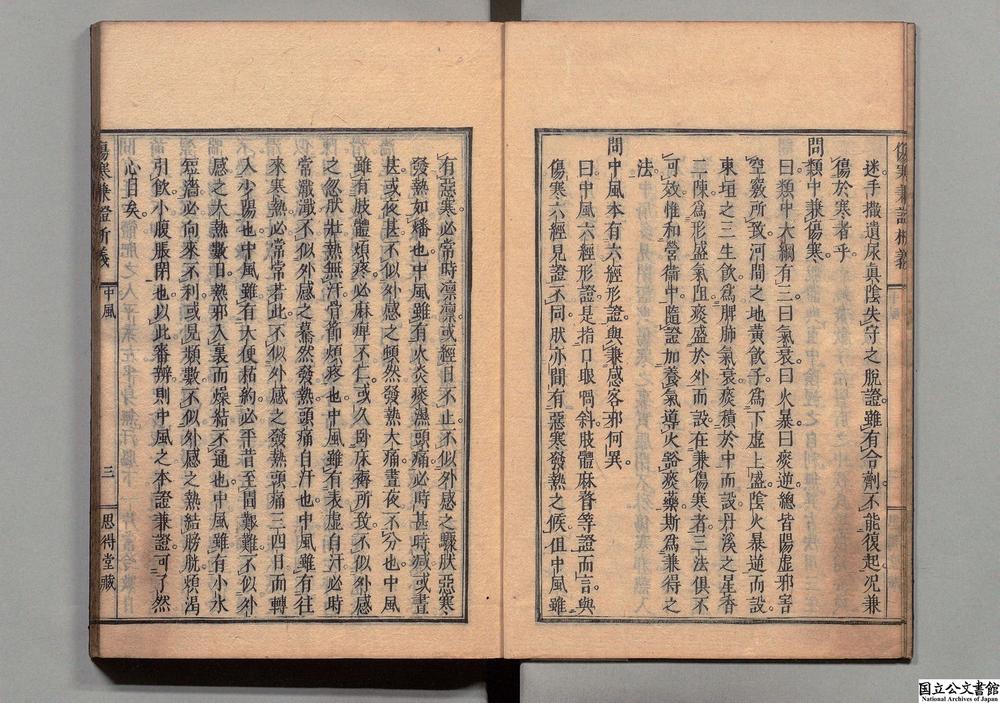 迷手撒遺尿真陰失守之脫證雖有合劑不能復起況兼
傷於寒者乎
問類中兼傷寒
曰類中大綱有三曰氣衰曰火暴曰痰逆總皆陽虛邪害
空竅所致河間之地黃飲子為下虛上盛陰火暴逆而設
東垣之三生飲為脾肺氣衰痰積於中而設丹溪之星香
二陳為形盛氣阻痰盛於外而設在兼傷寒者三法俱不
可效惟和營衞中隨證加養氣導火豁痰藥斯為兼得之
法
問中風本有六經形證與兼感客邪何異
曰中風六經形證是指口眼喎斜肢體麻脊等證而言與
傷寒六經見證不同狀亦間有惡寒發熱之候但中風雖
有惡寒必常時凜凜或經日不止不似外感之驟狀惡寒
發熱如燔也中風雖有火炎痰濕頭痛必時甚時減或晝
甚或夜甚不似外感之頓然發熱大痛晝夜不分也中風
雖有肢體煩疼必麻痺不仁或久卧床褥所致不似外感
之忽狀壯熱無汗骨節煩疼也中風雖有表虛自汗必時
常濈濈不似外感之驀然發熱頭痛自汗也中風雖有往
來寒熱必常常若此不似外感之發熱頭痛三四日而轉
入少陽也中風雖有大便秘約必平昔至間難難不似外
感之大熱數日熱邪入裏而燥結不通也中風雖有小水
短濇必向來不利或見頻數不似外感之熱結膀胱煩渴
引飲小腹脹閉也以此審辨則中風之本證兼證可了然
心目矣
傷寒兼證析義
中風
三
思得堂藏
国立公文書館
National Archives of Japan